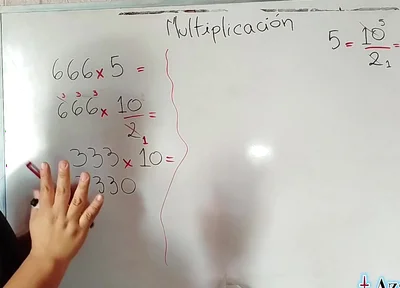 Multiplicación
666 x 5 =
3 3 3
666 x 10/2 1 =
333 x 10 =
330
5 = 10/2 5 1 =